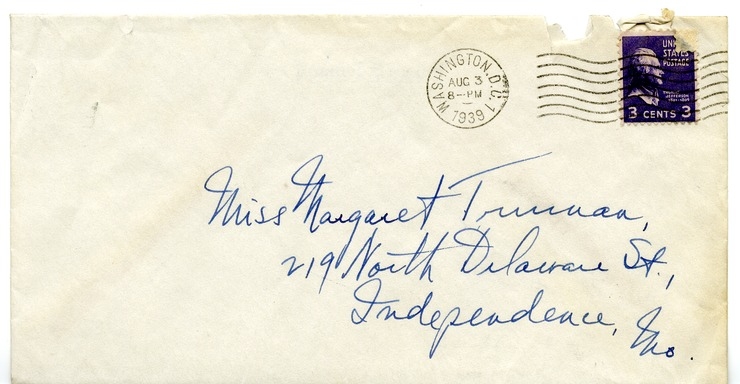 WASHINGTON, D.C. 1
AUG 3
8-PM
1939
STATES
POSTAGE
THOMAS
JEFFERSON
1801-1809
3 CENTS 3
Miss Margaret Truman,
219 North Delaware St.,
Independence, Mo.